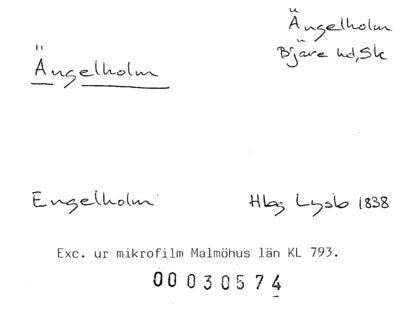 Ängelholm
Bjäre hd, Sk
Ängelholm
Engelholm
Hbg Lysb 1838
Exc. ur mikrofilm Malmöhus län KL 793.
00 030574